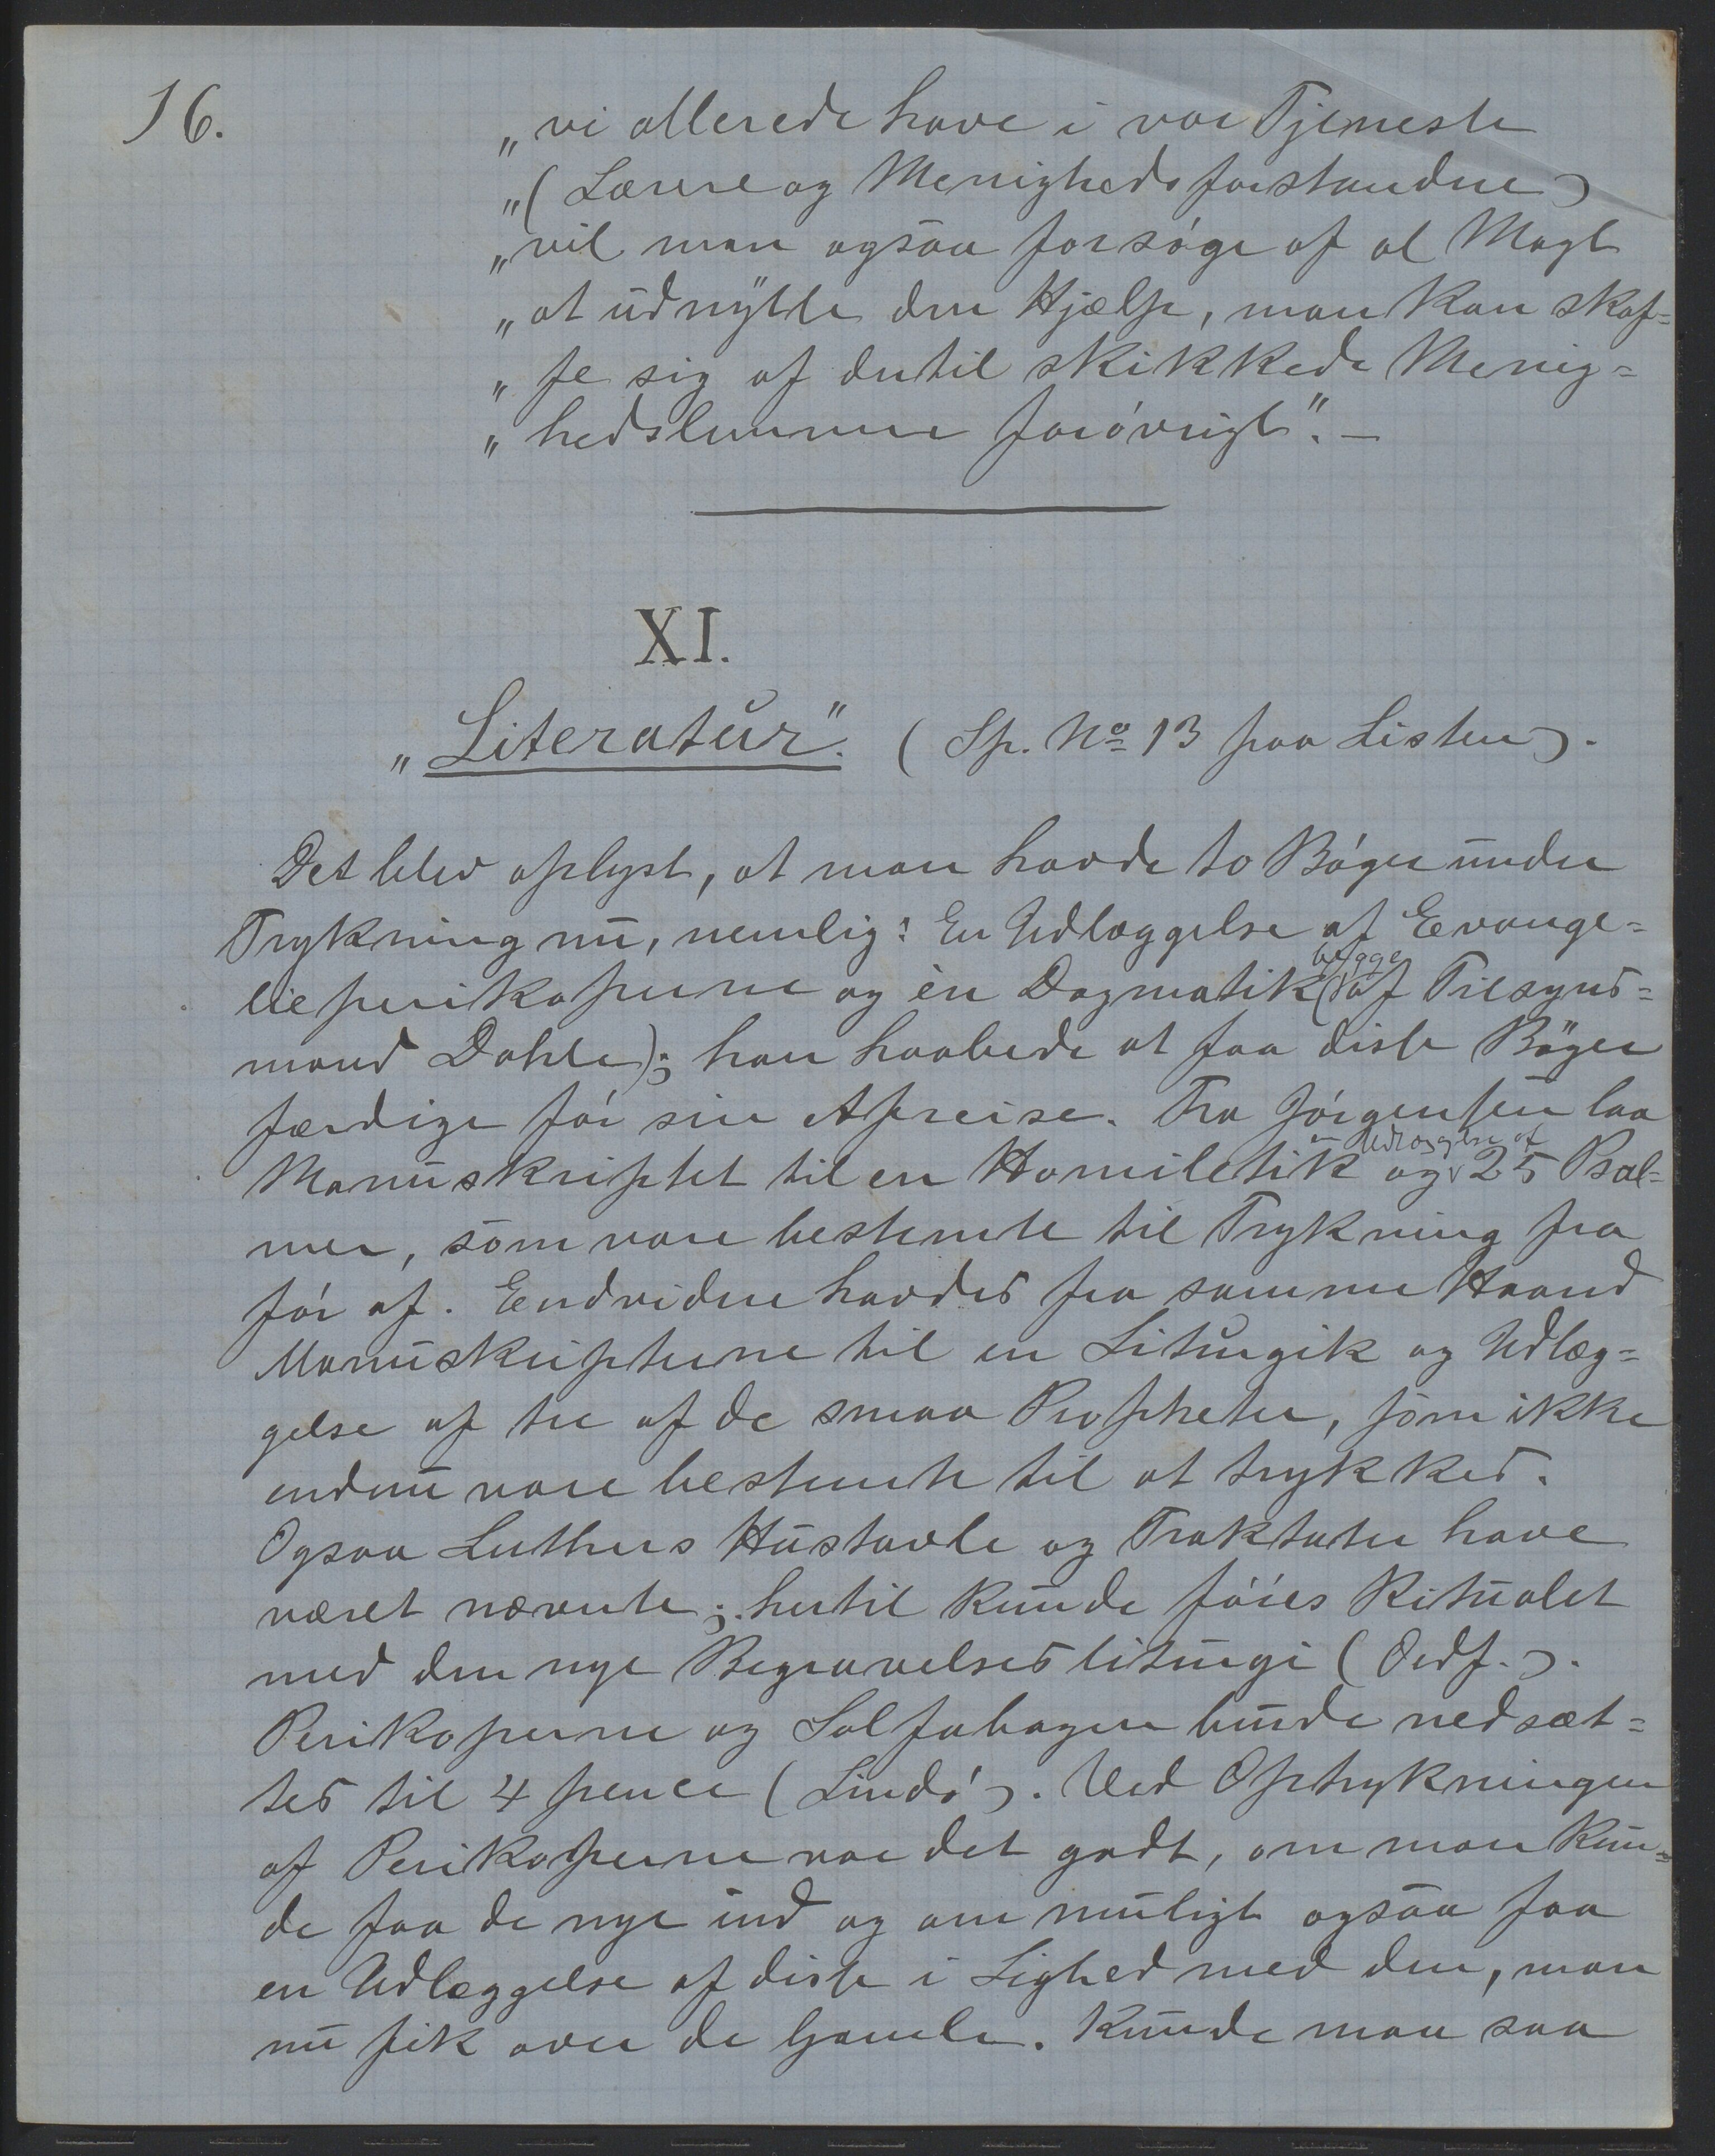 16.
„ vi allerede have i vor Tjeneste
„ (Lærere og Menighedsforstandere)
„ vil man ogsaa forsøge af al Magt
„ at udnytte den Hjælp, man kan skaf=
„ fe sig af dertil skikkede Menig=
„ hedslemmer forøvrigt". —
XI.
„Literatur". (Sp. No 13 paa Listen).
Det blev oplyst, at man havde to Bøger under
Trykning nu, nemlig: En Udlæggelse af Evange=
lieperikoperne og èn Dogmatik (begge af Tilsyns=
mand Dahle); han haabede at faa disse Bøger
færdige før sin Afreise. Fra Jörgensen laa
Manuskriptet til en Homiletik og en Udlæggelse af 25 Psal=
mer, som vare bestemte til Trykning fra
før af. Endvidere havdes fra samme Haand
Manuskripterne til en Liturgik og Udlæg=
gelse af tre af de smaa Propheter, som ikke
endnu vare bestemte til at trykkes.
Ogsaa Luthers Hustavle og Traktater have
været nævnte; hertil kunde føies Ritualet
med den nye Begravelsesliturgi (Ordf.).
Perikoperne og Solfabogen burde nedsæt=
tes til 4 pence (Lindø). Ved Optrykningen
af Perikoperne var det godt, om man kun=
de faa de nye ind og om muligt ogsaa faa
en Udlæggelse af disse i Lighed med den, man
nu fik over de Gamle. Kunde man saa